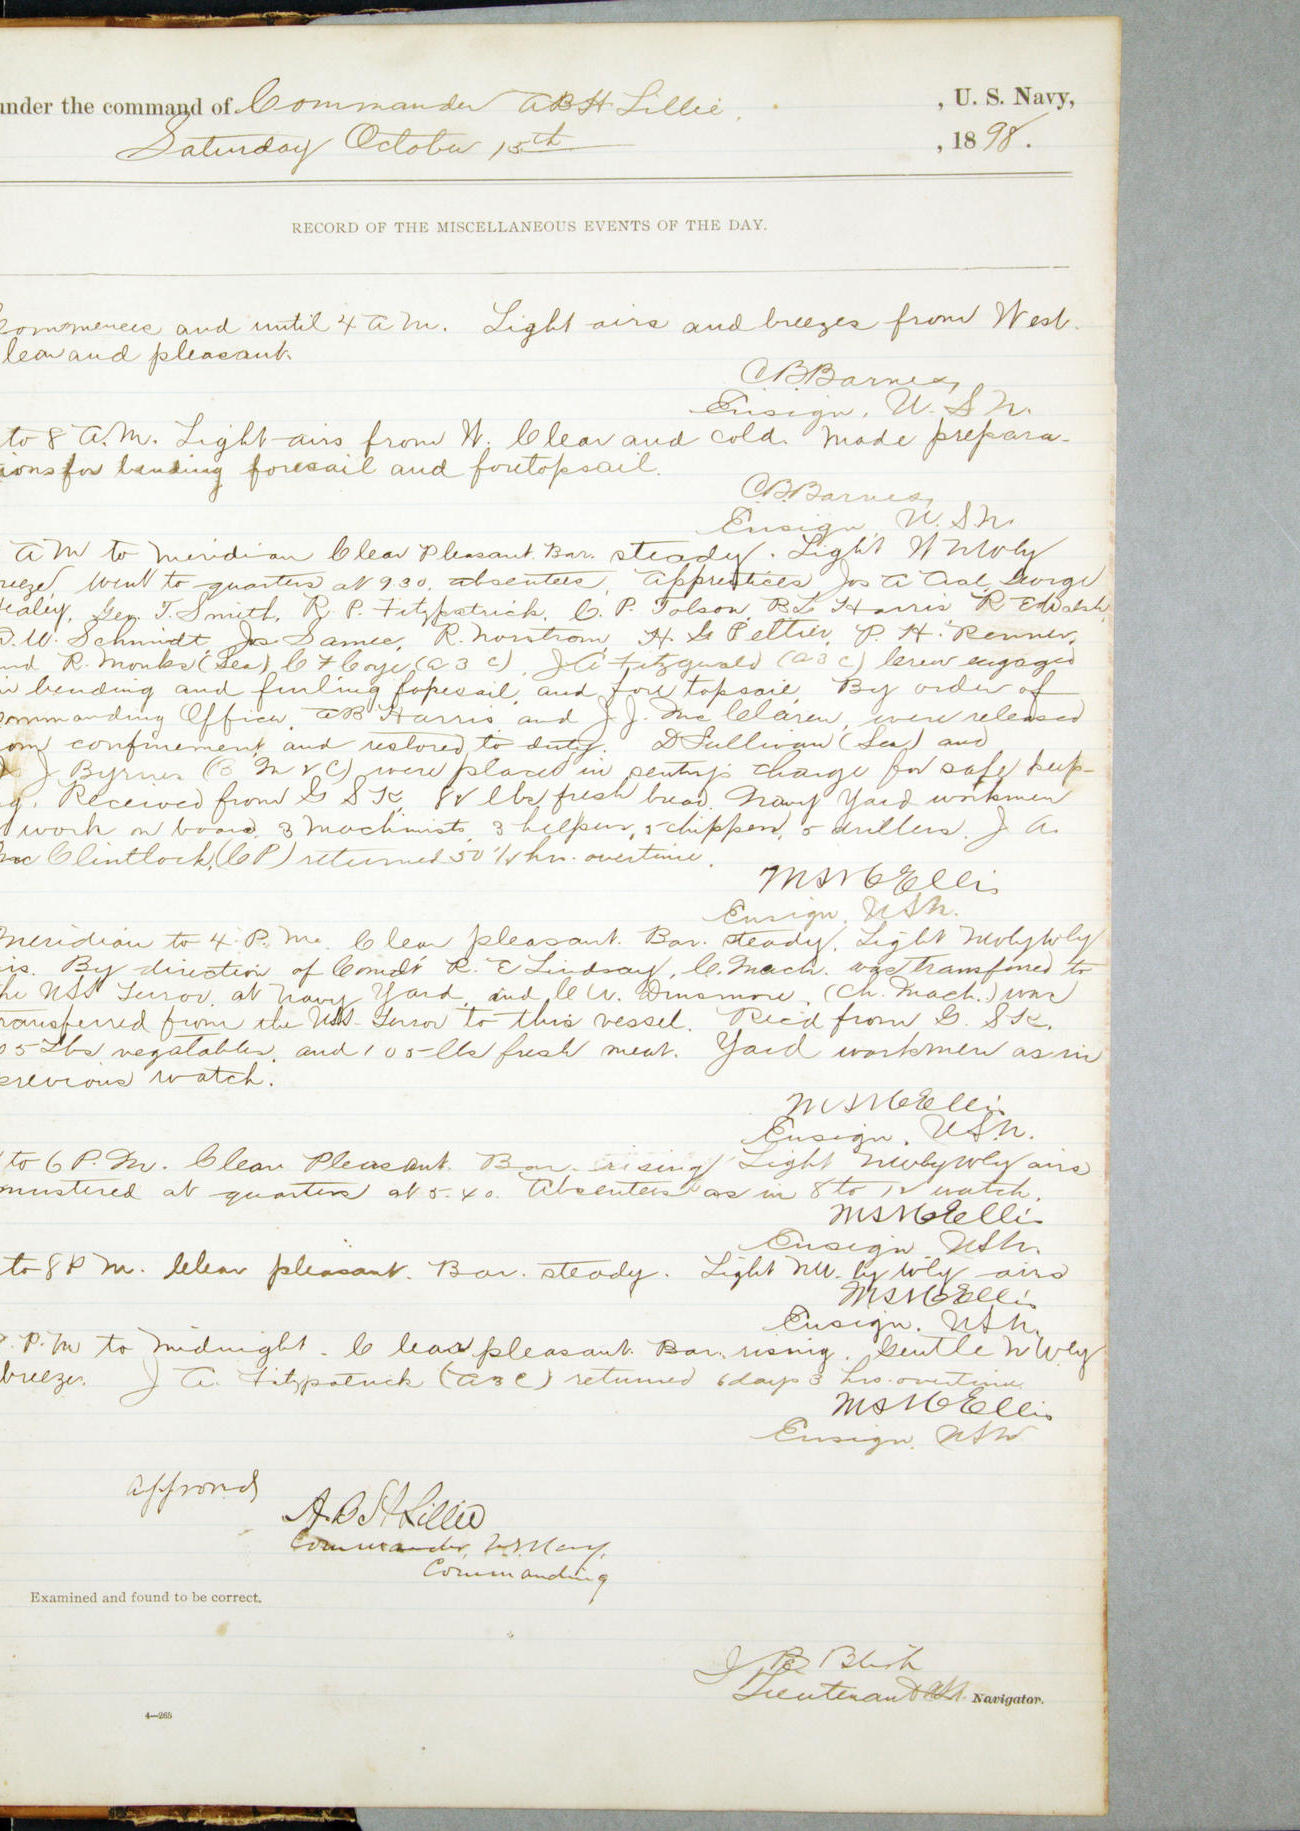 under the command of Commander A B H Lillie, U. S. Navy,
Saturday October 15th, 1898.
RECORD OF THE MISCELLANEOUS EVENTS OF THE DAY.
Commences and until 4 A M. Light airs and breezes from West.
lear and pleasant.
C.B. Barnes,
Ensign, U. S. N.
to 8 A.M. Light airs from W. Clear and cold. Made prepara-
ions for bending foresail and foretopsail.
C.B. Barnes,
Ensign U. S. N.
A M to Meridian Clear Pleasant. Bar. steady. Light
reeze, went to quarters at 9.30, absentees, Apprentices Jos A George
Healey, Geo. T. Smith, R. P. Fitzpatrick, C. P. Tolson, B L Harris R E Walsh
D. W. Schmidt, Jos Samec, R. Norstrom, H. G Peltier, P. H. Renner,
nd R. Monks (Sea) C F Coye (a 3 c), J A Fitzgerald (a 3 c) Crew engaged
in bending and furling foresail, and fore topsail. By order of
Commanding Officer, A B Harris and J. J. McClaren, were released
om confinement and restored to duty. D Sullivan (Sea) and
J Byrnes (B M 2 C) were placed in sentry's charge for safe keep-
g. Received from G S K, 82 lbs fresh bread. Navy Yard workmen
work on board, 3 Machinists, 3 helpers, 5 chippers, 5 drillers. J A.
McClintlock, (C P) returned 50 1/2 hrs. overtime.
M St C Ellis
Ensign, U S N.
Meridian to 4 P. M. Clear pleasant. Bar. steady. Light NWbyWly
irs. By direction of Comd't R. E Lindsay, C. Mach. was transferred to
he USS Terror, at Navy Yard, and C W. Dinsmore, (Ch. Mach.) was
transferred from the USS Terror to this vessel. Rec'd from G. S K.
05 lbs vegatables, and 105 lbs fresh meat. Yard workmen as in
previous watch.
M St C Ellis
Ensign, U.S.N.
to 6 P. M. Clear Pleasant. Bar. rising Light NWbyWly airs
mustered at quarters at 5.40. Absentees as in 8 to 12 watch.
M St C Ellis
Ensign U S N.
to 8 P M. Clear pleasant. Bar. steady. Light NW. by Wly airs
M St C Ellis
Ensign, U S N.
P. M to Midnight. Clear pleasant. Bar. rising. Gentle N Wly
breeze. J A. Fitzpatrick (a 3 C) returned 6 days 3 hrs. overtime
M St C Ellis
Ensign, U S N
Approved
A. B. H. Lillie
Commander, U.S. Navy,
Commanding
Examined and found to be correct.
J B Blish
Lieutenant USN. Navigator.
4—265